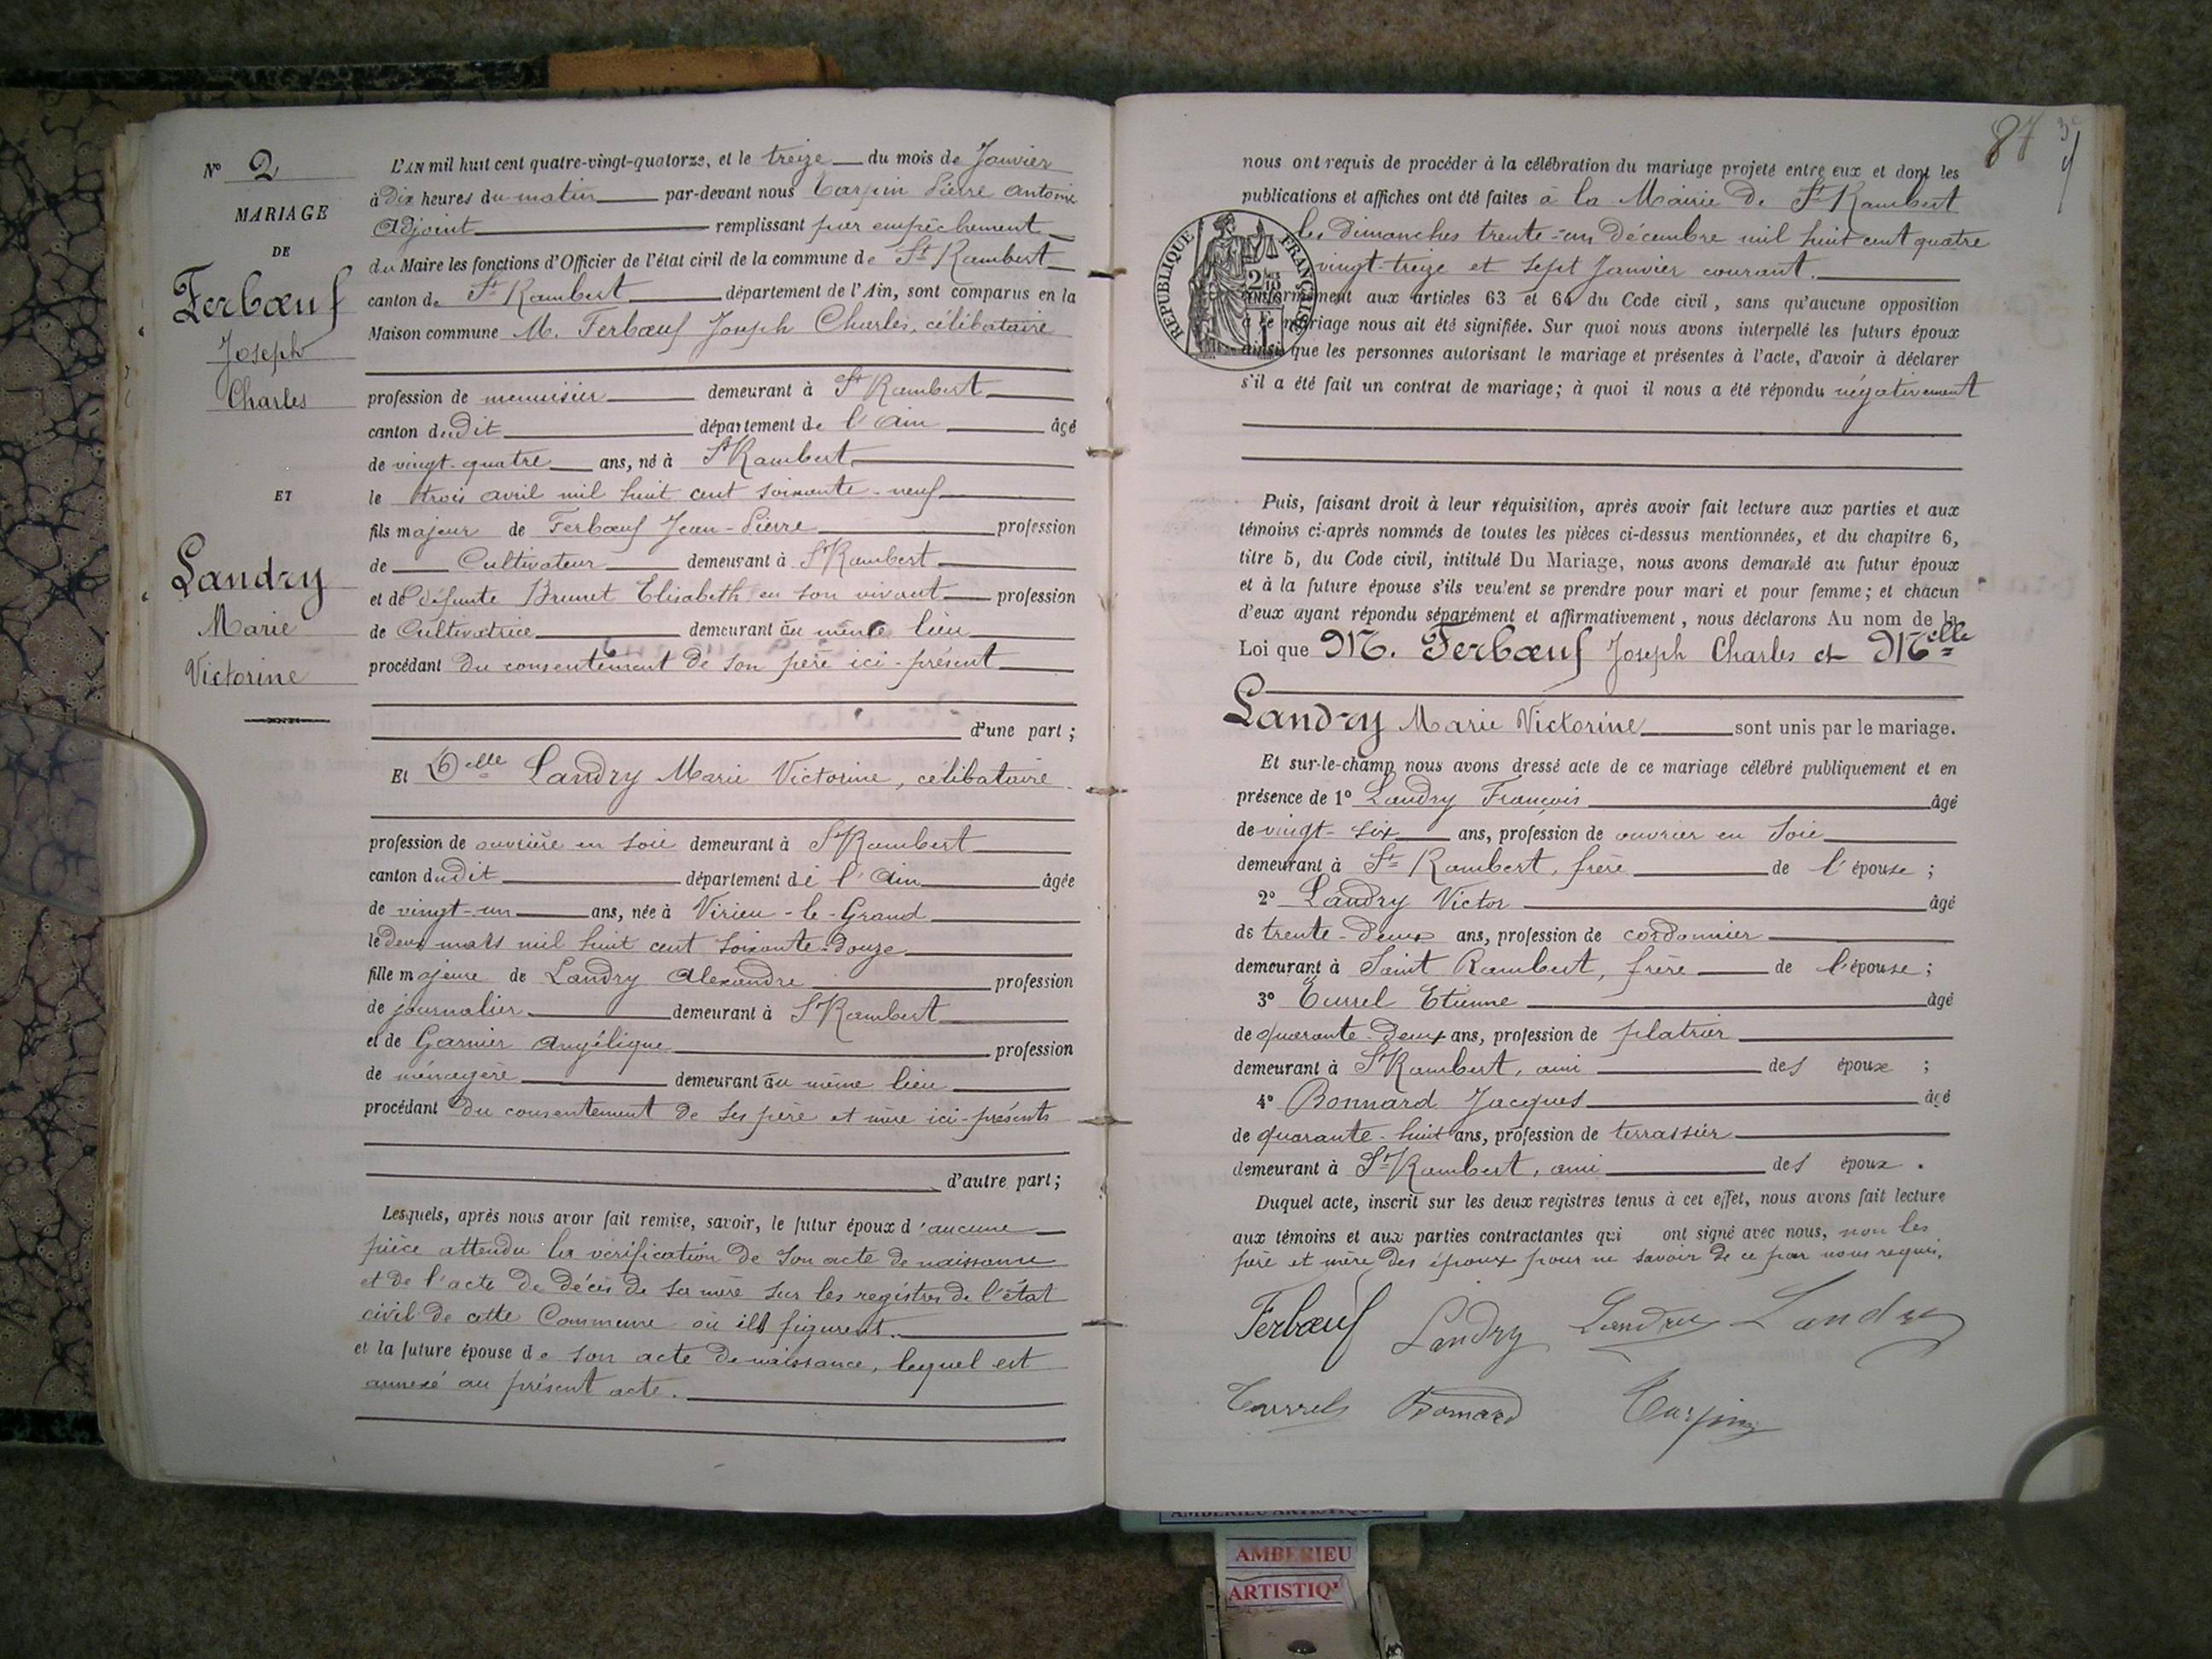 N° 2
MARIAGE
DE
Ferbœuf
Joseph
Charles
ET
Landry
Marie
Victorine
L'AN mil huit cent quatre-vingt-quatorze, et le treize du mois de Janvier
à Dix heures du matin par-devant nous Carpin Pierre Antoine
Adjoint remplissant par empêchement
du Maire les fonctions d'Officier de l'état civil de la commune de St Rambert
canton de St Rambert département de l'Ain, sont comparus en la
Maison commune M. Ferbœuf Joseph Charles, célibataire
profession de menuisier demeurant à St Rambert
canton dudit département de l'Ain âgé
de vingt-quatre ans, né à St Rambert
le trois avril mil huit cent soixante-neuf
fils majeur de Ferbœuf Jean-Pierre profession
de Cultivateur demeurant à St Rambert
et de défunte Brunet Elisabeth en son vivant profession
de Cultivatrice demeurant au même lieu
procédant du consentement de son père ici-présent
d'une part ;
Et Delle Landry Marie Victorine, célibataire
profession de ouvrière en soie demeurant à St Rambert
canton dudit département de l'Ain âgée
de vingt-un ans, née à Virieu-le-Grand
le deux mars mil huit cent soixante-douze
fille majeure de Landry Alexandre profession
de journalier demeurant à St Rambert
et de Garnier Angélique profession
de ménagère demeurant au même lieu
procédant du consentement de ses père et mère ici-présents
d'autre part ;
Lesquels, après nous avoir fait remise, savoir, le futur époux d'aucune
pièce attendu la vérification de son acte de naissance
et de l'acte de décès de sa mère sur les registres de l'état
civil de cette Commune où ils figurent.
et la future épouse de son acte de naissance, lequel est
annexé au présent acte.
87
nous ont requis de procéder à la célébration du mariage projeté entre eux et dont les
publications et affiches ont été faites à la Mairie de St Rambert
les Dimanches trente-un Décembre mil huit cent quatre
vingt-treize et sept Janvier courant.
RÉPUBLIQUE FRANÇAISE
conformément aux articles 63 et 64 du Code civil, sans qu'aucune opposition
à ce mariage nous ait été signifiée. Sur quoi nous avons interpellé les futurs époux
ainsi que les personnes autorisant le mariage et présentes à l'acte, d'avoir à déclarer
s'il a été fait un contrat de mariage ; à quoi il nous a été répondu négativement
Puis, faisant droit à leur réquisition, après avoir fait lecture aux parties et aux
témoins ci-après nommés de toutes les pièces ci-dessus mentionnées, et du chapitre 6,
titre 5, du Code civil, intitulé Du Mariage, nous avons demandé au futur époux
et à la future épouse s'ils veulent se prendre pour mari et pour femme ; et chacun
d'eux ayant répondu séparément et affirmativement, nous déclarons Au nom de la
Loi que M. Ferbœuf Joseph Charles et Melle
Landry Marie Victorine sont unis par le mariage.
Et sur-le-champ nous avons dressé acte de ce mariage célébré publiquement et en
présence de 1° Landry François âgé
de vingt-six ans, profession de ouvrier en soie
demeurant à St Rambert, frère de l'épouse ;
2° Landry Victor âgé
de trente-deux ans, profession de cordonnier
demeurant à Saint Rambert, frère de l'épouse ;
3° Currel Etienne âgé
de quarante-deux ans, profession de platrier
demeurant à St Rambert, ami des époux ;
4° Bonnard Jacques âgé
de quarante-huit ans, profession de terrassier
demeurant à St Rambert, ami des époux.
Duquel acte, inscrit sur les deux registres tenus à cet effet, nous avons fait lecture
aux témoins et aux parties contractantes qui ont signé avec nous, non les
père et mère des époux pour ne savoir de ce par nous requis.
Ferbœuf Landry Landry Landry
Bonnard Carpin
AMBERIEU ARTISTIQUE
AMBERIEU
ARTISTIQ